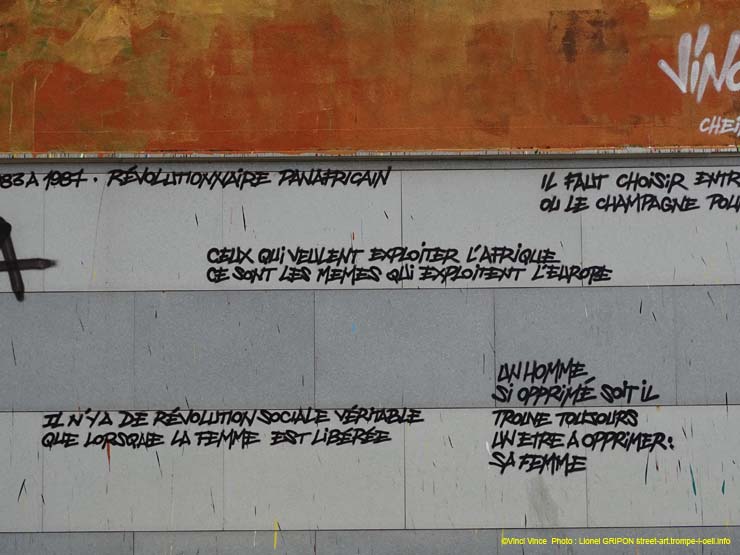 VINC
CHEI
983 A 1987 . RÉVOLUTIONNAIRE PANAFRICAIN
IL FAUT CHOISIR ENTR
OU LE CHAMPAGNE POU
CEUX QUI VEULENT EXPLOITER L'AFRIQUE
CE SONT LES MEMES QUI EXPLOITENT L'EUROPE
UN HOMME
SI OPPRIMÉ SOIT IL
TROUVE TOUJOURS
UN ETRE A OPPRIMER :
SA FEMME
IL N'Y A DE RÉVOLUTION SOCIALE VÉRITABLE
QUE LORSQUE LA FEMME EST LIBÉRÉE
©Vinci Vince Photo : Lionel GRIPON street-art.trompe-l-oeil.info